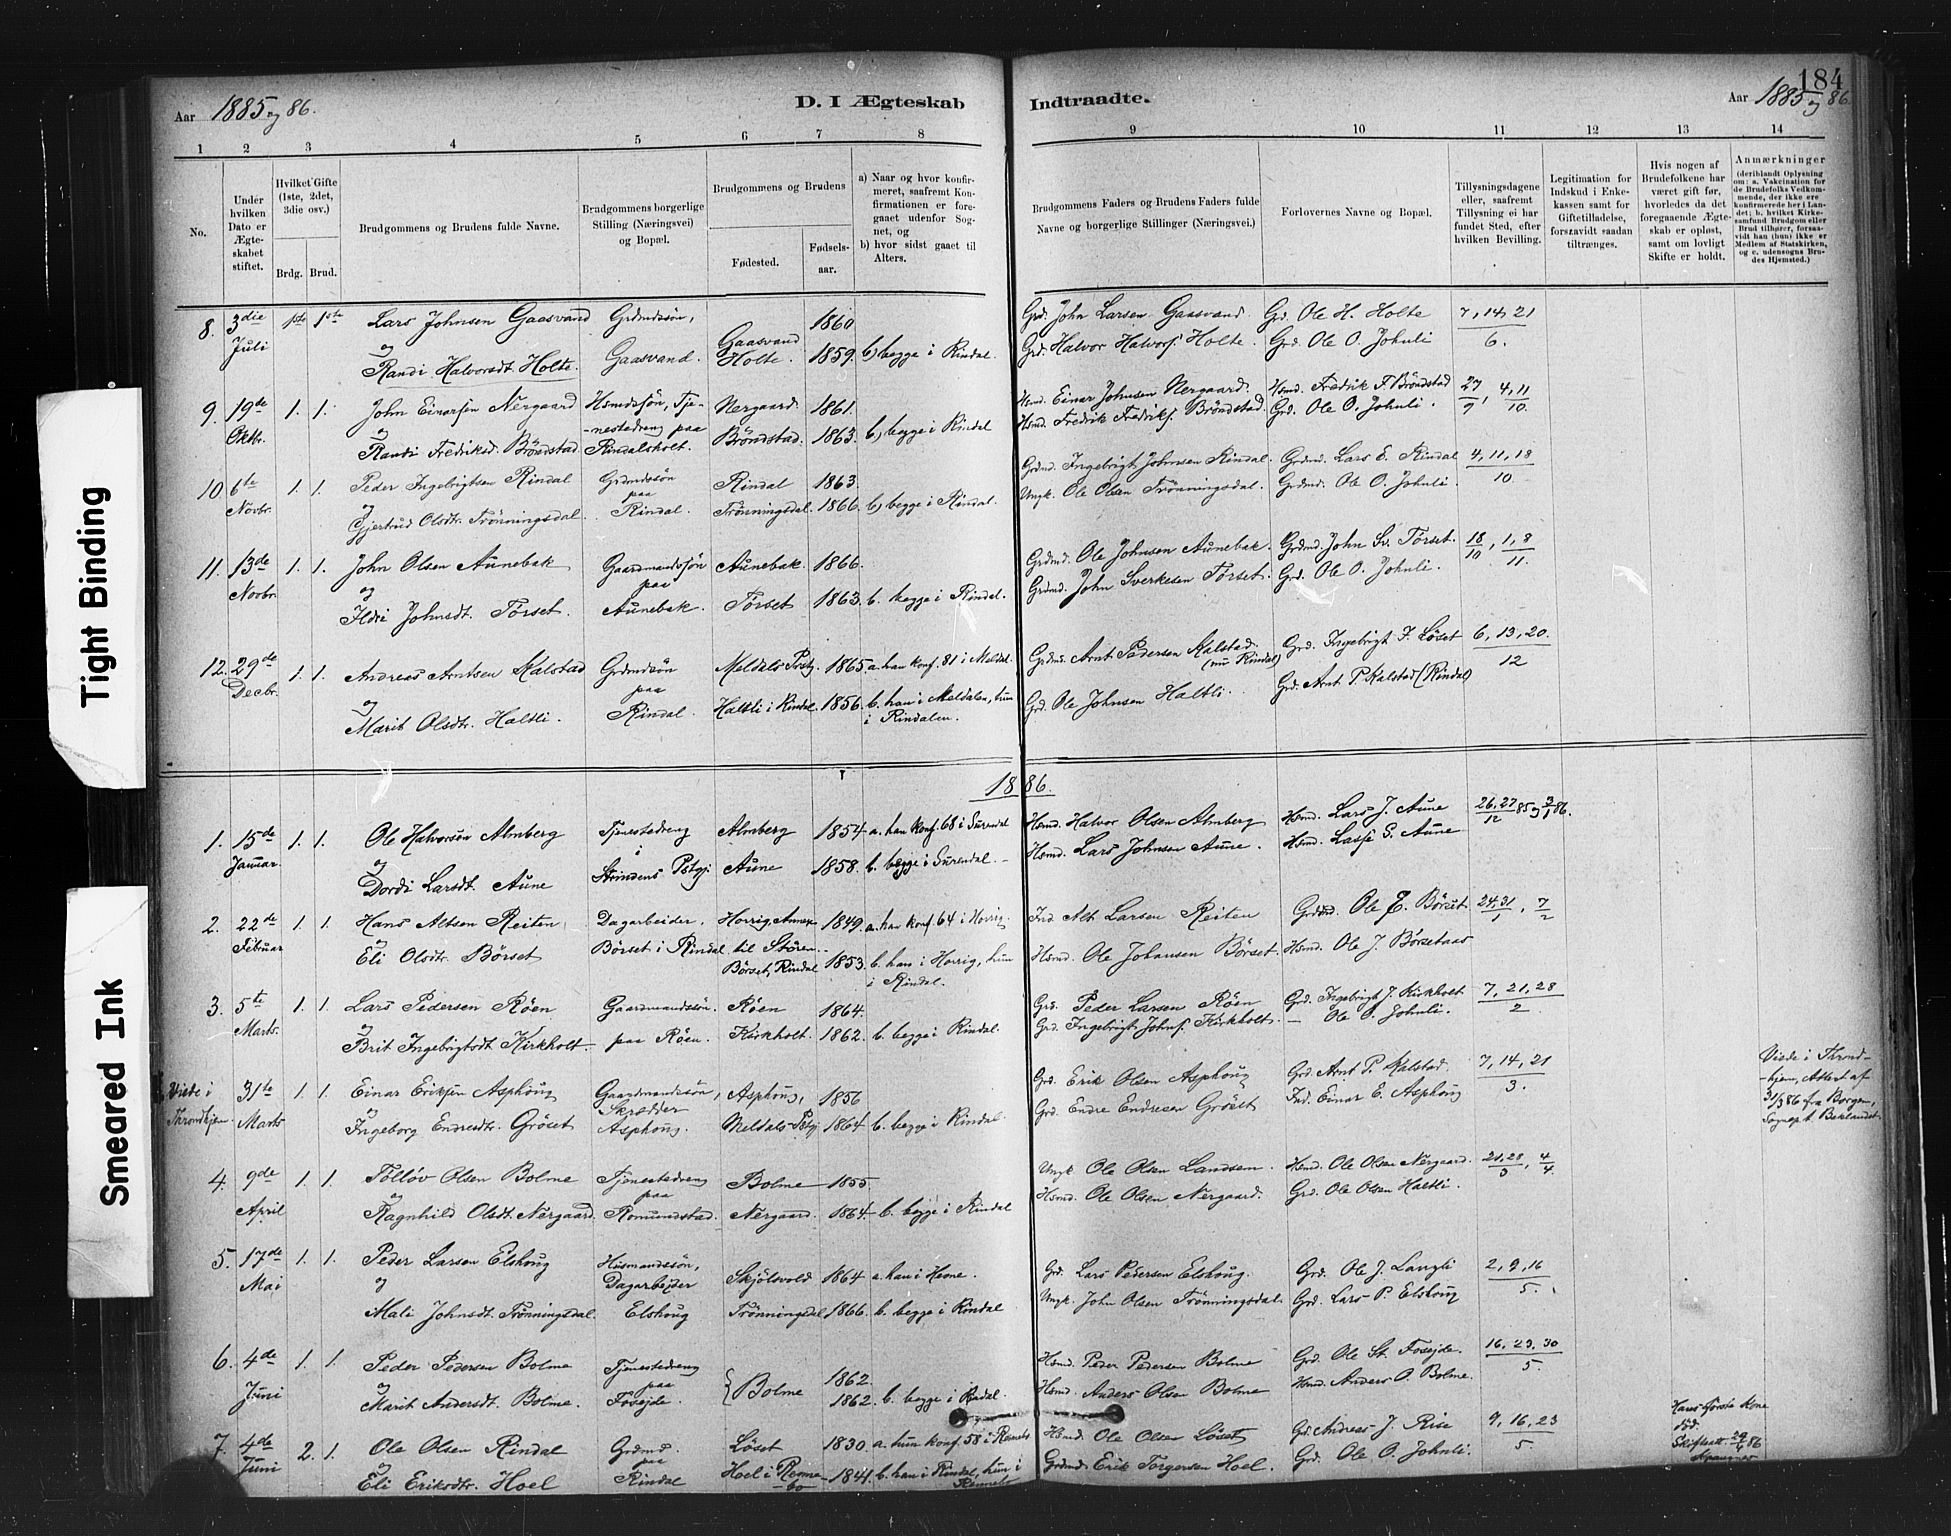 184
Aar 1885 og 86.
D. I Ægteskab Indtraadte.
Aar 1885 og 86
1 2 3 4 5 6 7 8 9 10 11 12 13 14
No.
Under hvilken Dato er Ægteskabet stiftet.
Hvilket Gifte (1ste, 2det, 3die osv.)
Brdg. Brud.
Brudgommens og Brudens fulde Navne.
Brudgommens borgerlige Stilling (Næringsvei) og Bopæl.
Brudgommens og Brudens
Fødested. Fødselsaar.
a) Naar og hvor konfirmeret, saafremt Konfirmationen er foregaaet udenfor Sognet, og
b) hvor sidst gaaet til Alters.
Brudgommens Faders og Brudens Faders fulde Navne og borgerlige Stillinger (Næringsvei.)
Forlovernes Navne og Bopæl.
Tillysningsdagene eller, saafremt Tillysning ei har fundet Sted, efter hvilken Bevilling.
Legitimation for Indskud i Enkekassen samt for Giftetilladelse, forszavidt saadan tiltrænges.
Hvis nogen af Brudefolkene har været gift før, hvorledes da det foregaaende Ægteskab er opløst, samt om lovligt Skifte er holdt.
Anmærkninger
(deriblandt Oplysning om: a. Vakcination for de Brudefolks Vedkommende, der ikke ere konfirmerede her i Landet; b. hvilket Kirkesamfund Brudgom eller Brud tilhører, forsaavidt han (hun) ikke er Medlem af Statskirken, og c. udensogns Brudes Hjemsted.)
8. 3die Juli 1ste 1ste Lars Johnsen Gaasvand Grdmdssøn, Gaasvand 1860 Grd. John Larsen Gaasvand Gd. Ole H. Holte 7, 14, 21
og
Randi Halvorsdt Holte. Gaasvand. Holte. 1859. b) begge i Rindal. Grd. Halvor Halvors. Holte. Grd. Ole O. Johnli 6.
9. 19de Oktbr. 1. 1. John Einarsen Nergaard Hsmdssøn, Tje- Nergaard 1861. Hsmd. Einar Johnsen Nergaard. Hsmd. Fredrik F. Brøndstad 27/9, 4,11/10
og -nestedreng paa
Randi Fredriksd. Brøndstad Rindalsholt. Brøndstad. 1863. b) begge i Rindal Hsmd. Fredrik Fredriks. Brøndstad Grd. Ole O. Johnli.
10. 6te Novbr. 1. 1. Peder Ingebrigtsen Rindal Grdmdssøn Rindal 1863. Grdmd. Ingebrigt Johnsen Rindal. Grdmd. Lars E. Rindal 4, 11, 18
og paa
Gjertrud Olsdtr. Trønningsdal. Rindal. Trønningsdal. 1866. b) begge i Rindal. Ungk. Ole Olsen Trønningsdal. Grdmd. Ole O. Johnli. 10.
11. 13de Novbr. 1. 1. John Olsen Aunebak Gaardmandssøn Aunebak 1866. Grdmd. Ole Johnsen Aunebak. Grdmd. John Sv. Torset. 18/10, 1,8/11.
og paa
Ildri Johnsdt. Torset. Aunebak. Torset 1863. b. begge i Rindal. Grdmd. John Sverkesen Torset. Grd. Ole O. Johnli.
12. 29de Decbr. 1. 1. Andreas Arntsen Kalstad Grdmdssøn Meldals Prstgj. 1865. a. han konf. 81 i Meldal. Grdmd. Arnt Pedersen Kalstad (nu Rindal) Grd. Ingebrigt J. Løset 6, 13, 20.
og paa
Marit Olsdtr. Haltli. Rindal. Haltli i Rindal. 1856. b. han i Meldalen, hun i Rindalen. Grd. Ole Johnsen Haltli. Grd. Arnt P. Kalstad (Rindal) 12
1886.
1. 15de Januar. 1. 1. Ole Halvorsen Almberg Tjenestedreng Almberg 1854 a. han konf. 68 i Surendal Hsmd. Halvor Olsen Almberg Hsmd. Lars J. Aune 26,27/12 85 og 3/1 86.
og i
Dordi Larsdt. Aune Strindens Pstgj. Aune 1858. b. begge i Surendal. Hsmd. Lars Johnsen Aune. Hsmd. Lasse S. Aune
2. 22de Februar 1. 1. Hans Altsen Reiten, Dagarbeider. Horrig Annex til Støren. 1849. a. han konf. 64 i Horrig. Ind. Alt Larsen Reiten Grdmd. Ole E. Børset 24,31/1, 7/2
og
Eli Olsdtr. Børset Børset i Rindal Børset, Rindal 1853. b. han i Horrig, hun i Rindal. Hsmd. Ole Johansen Børset. Hsmd. Ole J. Børsetaas
3. 5te Marts. 1. 1. Lars Pedersen Røen Gaardmandssøn. Røen 1864. Grd. Peder Larsen Røen Grd. Ingebrigt J. Kirkholt 7, 21, 28
og
Brit Ingebrigtsdt Kirkholt. paa Røen. Kirkholt. 1862. b. begge i Rindal. Grd. Ingebrigt Johns. Kirkholt. — Ole O. Johnli. 2
Viede i Throndhjem. 31te Marts 1. 1. Einar Eriksen Asphoug Gaardmandssøn, Skrædder Asphoug, 1856 Grd. Erik Olsen Asphoug Grd. Arnt P. Kalstad. 7, 14, 21
og
Ingeborg Endresdtr. Grøset Asphoug. Meldals Pstgj. 1864 b. begge i Rindal. Grd. Endre Endresen Grøset Ind. Einar E. Asphoug 3.
Viede i Throndhjem, Attest af 31/3 86 fra Borgen, Sognep. t. Baklandet.
4. 9de April 1. 1. Tølløv Olsen Bolme Tjenestedreng Bolme 1855. Ungk. Ole Olsen Landsem. Hsmd. Ole Olsen Nergaard. 21,28/3, 4/4.
og paa
Ragnhild Olsdt. Nergaard. Romundstad. Nergaard. 1864. b. begge i Rindal Hsmd. Ole Olsen Nergaard. Grd. Ole Olsen Haltli.
5. 17de Mai 1. 1. Peder Larsen Elshoug Husmandssøn, Dagarbejder Skjølsvold 1864 a. han i Hevne. Grd. Lars Pedersen Elshoug. Grd. Ole J. Langli 2, 9, 16
og
Mali Johnsdt. Trønningsdal. Elshoug Trønningsdal 1866. b. begge i Rindal Ungk. John Olsen Trønningsdal. Grd. Lars P. Elshoug 5.
6. 4de Juni 1. 1. Peder Pedersen Bolme Tjenestedreng { Bolme 1862. Hsmd. Peder Pedersen Bolme Grd. Ole St. Fosejde. 16, 23, 30
og paa
Marit Andersdt. Bolme. Fosejde. 1862. b. begge i Rindal. Hsmd. Anders Olsen Bolme Hsmd. Anders O. Bolme. 5.
7. 4de Juni 2. 1. Ole Olsen Rindal Grdmd. Løset 1830. a. hun konf. 58 i Rennebo Hsmd. Ole Olsen Løset Grd. Andreas J. Rise 9, 16, 23
og paa
Eli Eriksdtr. Hoel Rindal Hoel i Rennebo 1841. b. han i Rindal, hun i Rennebo Grdmd. Erik Torgersen Hoel. Grd. Ole O. Johnli. 5.
Hans første Kone død. Skifteatt. 86
Tight Binding
Smeared Ink